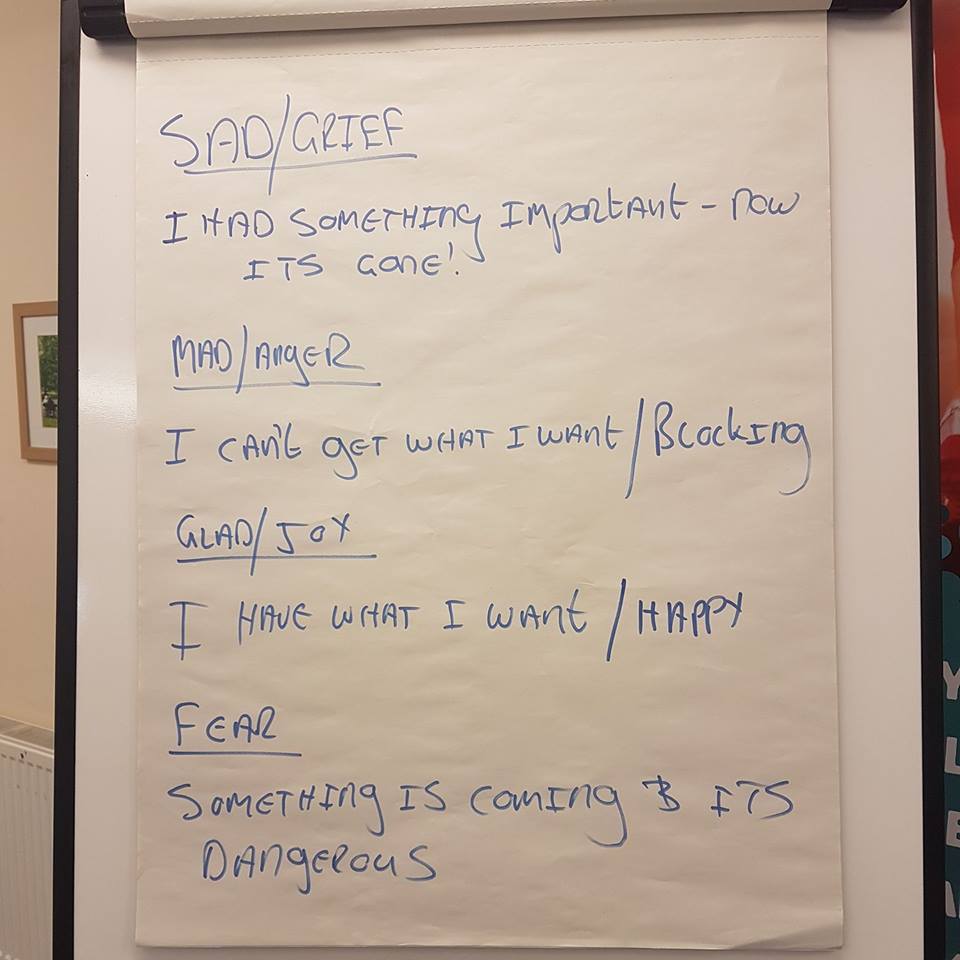 SAD/GRIEF
I HAD SOMETHING IMPORTANT - NOW
ITS GONE!
MAD/ANGER
I CAN'T GET WHAT I WANT/BLOCKING
GLAD/JOY
I HAVE WHAT I WANT/HAPPY
FEAR
SOMETHING IS COMING & ITS
DANGEROUS